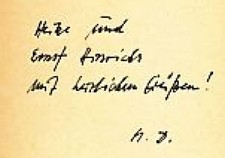 Heike und
Ernst Hinrichs
mit herzlichen Grüßen!
M. D.